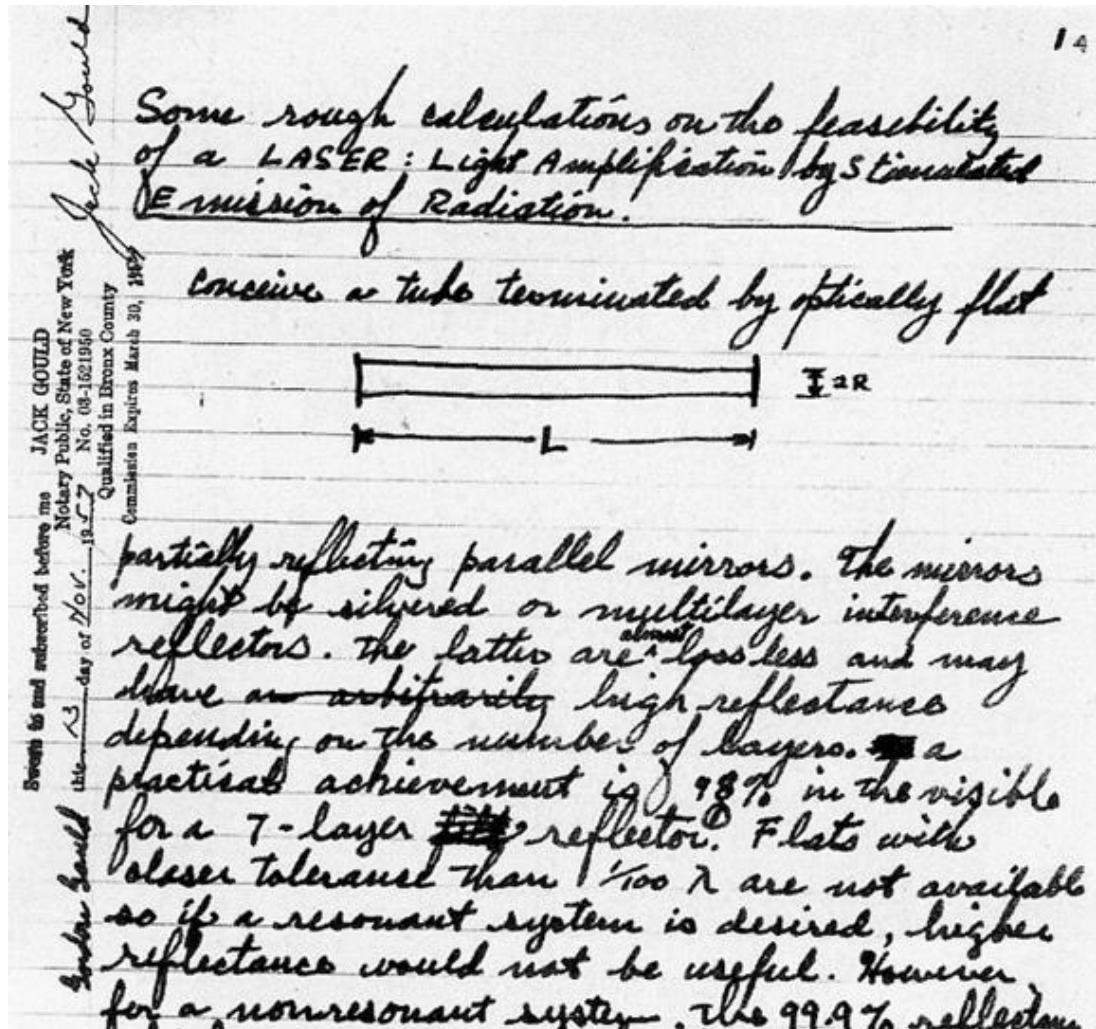 14
Some rough calculations on the feasibility
of a LASER: Light Amplification by Stimulated
Emission of Radiation.
conceive a tube terminated by optically flat
2R
L
partially reflecting parallel mirrors. The mirrors
might be silvered or multilayer interference
reflectors. The latter are almost lossless and may
have an arbitrarily high reflectance
depending on the number of layers. a
practical achievement is 98% in the visible
for a 7-layer reflector.① Flats with
closer tolerance than 1/100 λ are not available
so if a resonant system is desired, higher
reflectance would not be useful. However
for a nonresonant system, the 99.9% reflectance
Jack Gould
JACK GOULD
Notary Public, State of New York
No. 03-1521950
Qualified in Bronx County
Commission Expires March 30, 1959
Sworn to and subscribed before me
this 13 day of Nov. 1957
Gordon Gould